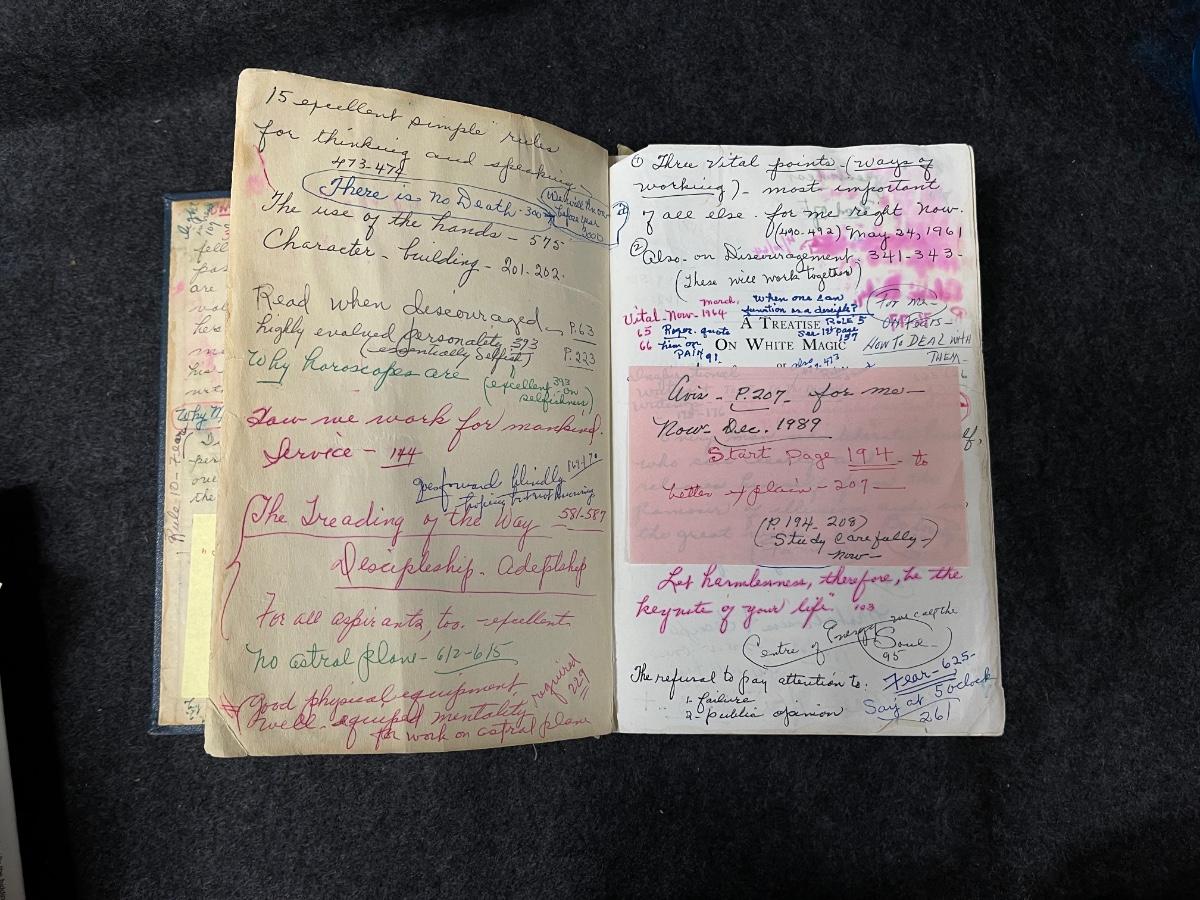 15 excellent simple rules
for thinking and speaking -
473-474
There is no Death - 300
We will know
before year
2000
The use of the hands - 575
Character - building - 201-202.
Read when discouraged - P.63
highly evolved personality 393
(essentially selfish)
P.223
Why horoscopes are
(excellent 393 on
selfishness)
How we work for mankind.
Service - 144
goes forward blindly 169-170
hoping but not knowing
The Treading of the Way 581-587
Discipleship - Adeptship
For all aspirants, too. - excellent
No astral plane - 612-615
Good physical equipment
well-equiped mentality required
229
for work on astral plane
Rule-10-Fear
Why
① Three Vital points - (ways of
working) - most important
of all else. for me right Now.
(490-492) May 24, 1961
② Also - on Discouragement - 341-343 -
(These will work together)
Vital - Now - March, 1964
65
66
quote
PAIN 91.
When one can
function as a disciple?
RULE 5
See 1st page
157
also 413
(For me -
Of Fears -
HOW TO DEAL WITH
THEM -
A TREATISE
ON WHITE MAGIC
or
Avis - P.207 - for me -
Now - Dec. 1989
Start page 194 - to
better explain - 207 -
(P. 194 - 208)
Study carefully -
now -
Let harmlessness, therefore, be the
keynote of your life." 103
Centre of Energy we call the
Soul -
95
The refusal to pay attention to.
1- failure
2- public opinion
Fear - 625 -
Say at 5 o'clock
261